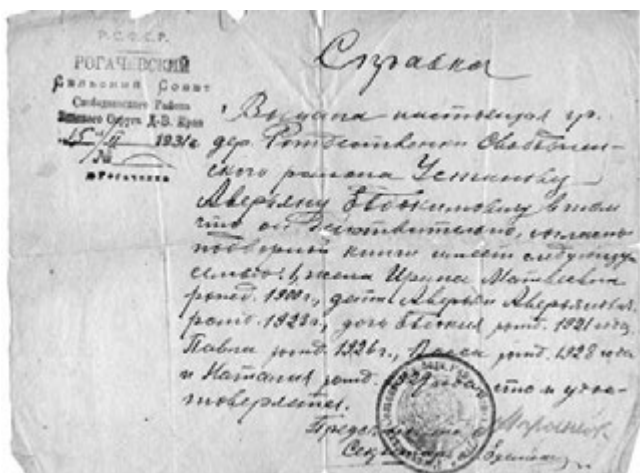 Р.С.Ф.С.Р.
РОГАЧЕВСКИЙ
Сельский Совет
Свободненского Района
Округа Д-В. Края
15 II 1931 г.
№
Справка
Выдана настоящая гр.
дер. Рождественки Свободнен-
ского района
Аверьяну Евдокимовичу в том
что он действительно, согласно
подворной книги имеет следующую
семью: 1, жена Ирина Матвеевна
рожд. 1900 г., дети Аверьян Аверьянович
рожд. 1923 г., дочь Евдокия рожд. 1921 года
Павла рожд. 1926 г., рожд. 1928 года
и Наталия рожд. что и удос-
товеряется.
Председатель
Секретарь